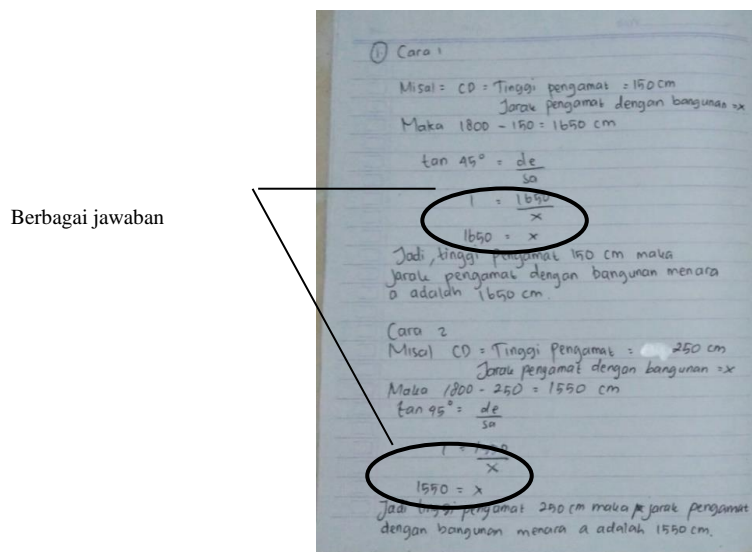 ① Cara 1
Misal = CD = Tinggi pengamat = 150 cm
Jarak pengamat dengan bangunan = x
Maka 1800 - 150 = 1650 cm
tan 45° = de
sa
1 = 1650
x
1650 = x
Jadi, tinggi pengamat 150 cm maka
jarak pengamat dengan bangunan menara
a adalah 1650 cm.
Berbagai jawaban
Cara 2
Misal CD = Tinggi Pengamat = 250 cm
Jarak pengamat dengan bangunan = x
Maka 1800 - 250 = 1550 cm
tan 45° = de
sa
1 = 1550
x
1550 = x
Jadi tinggi pengamat 250 cm maka jarak pengamat
dengan bangunan menara a adalah 1550 cm.